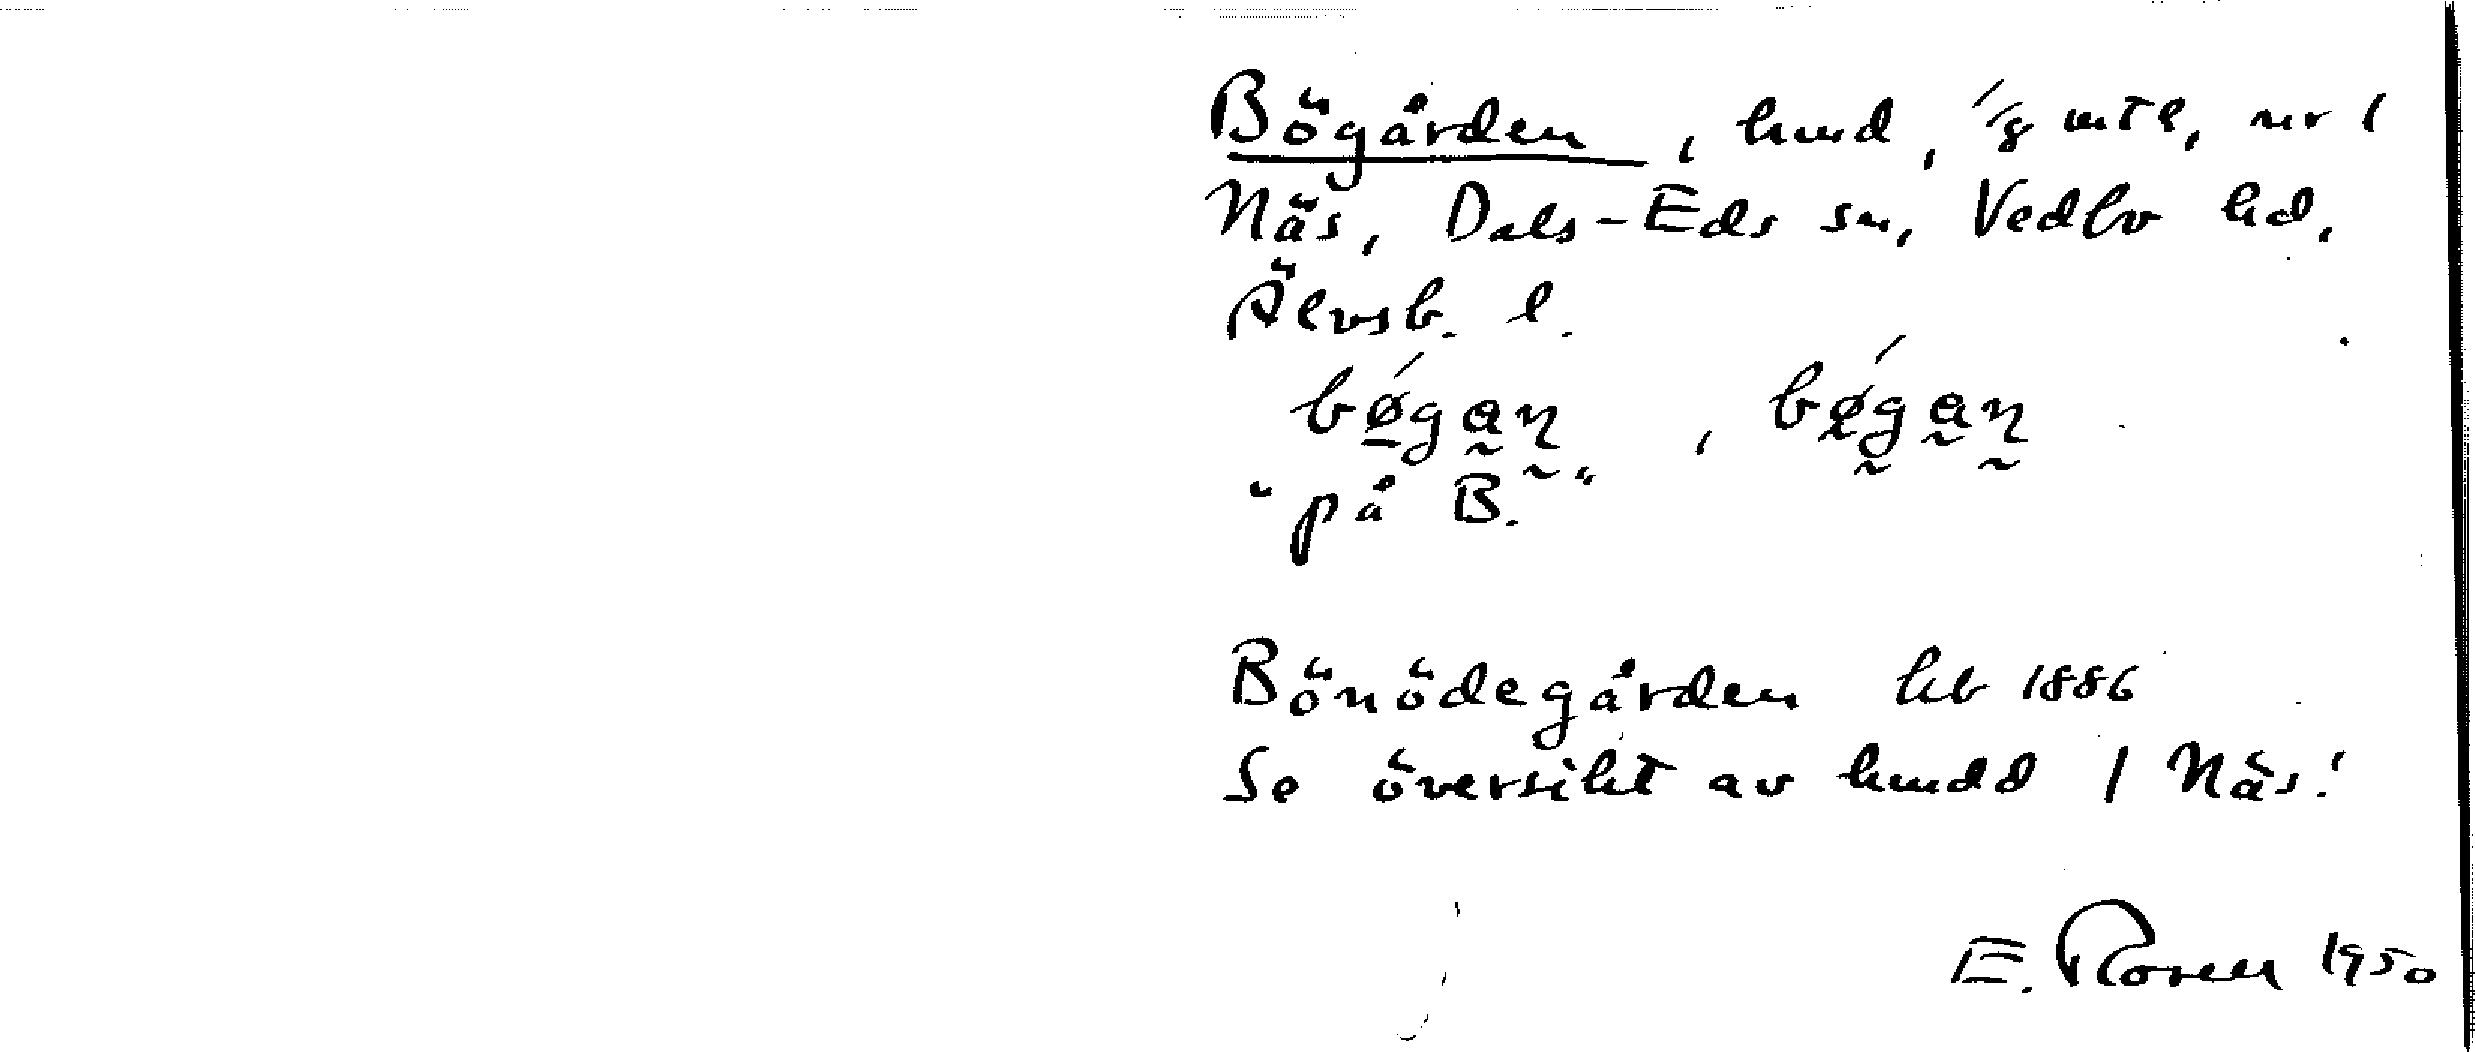 Bögården, hmd, 1/8 mtl, nr 1
Näs, Dals-Eds sn, Vedbo hd,
Älvsb. l.
bǿgan, bǿgan
"på B."
Bönödegården hb 1886
Se översikt av hmdd 1 Näs!
E. Rosen 1950